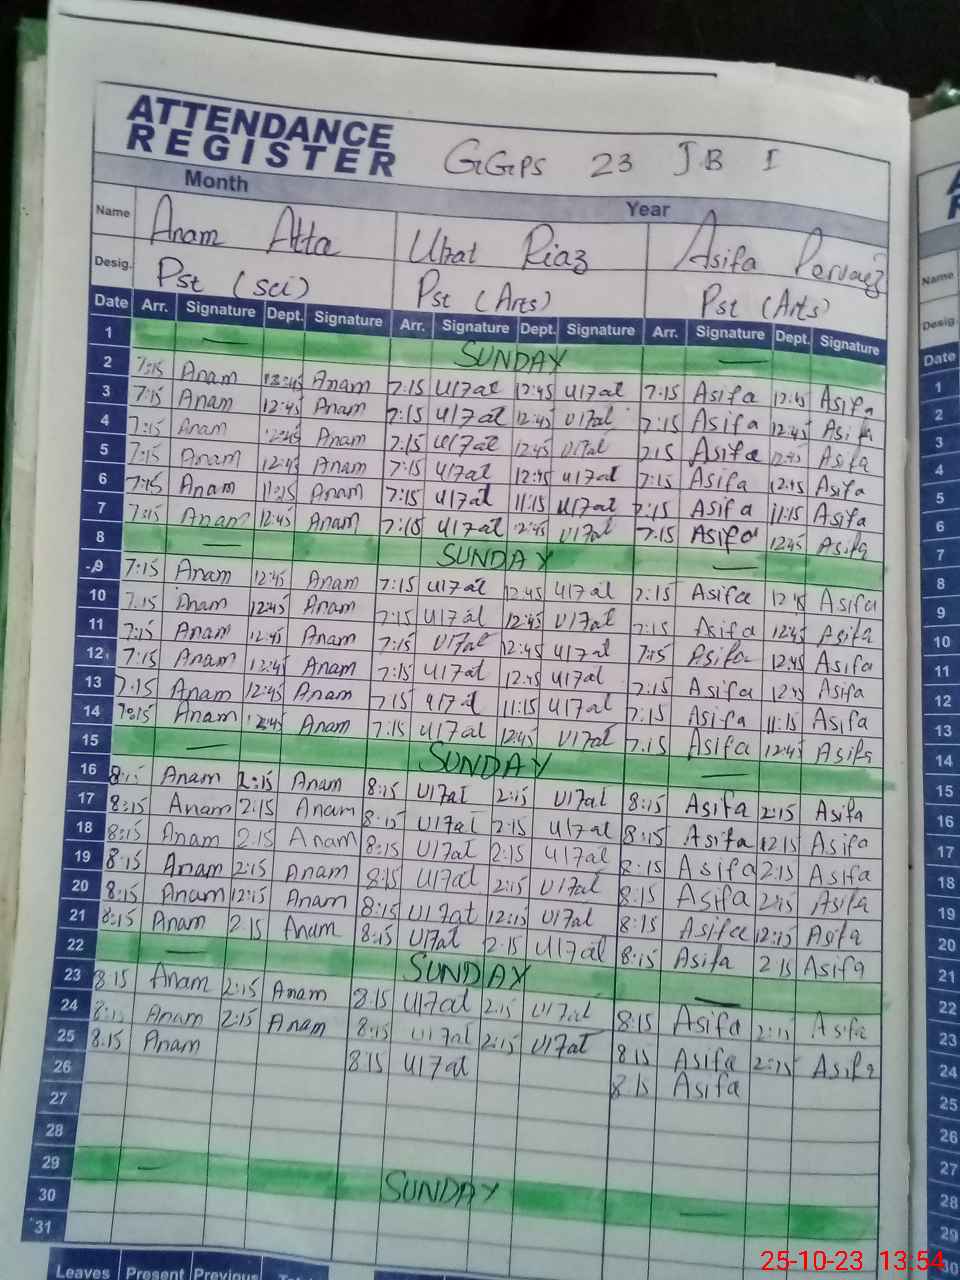 ATTENDANCE
REGISTER
GGPS 23 JB I
Month Year
Name Anam Atta Uzat Riaz Asifa Pervaiz
Desig. Pst (sci) Pst (Arts) Pst (Arts)
Date Arr. Signature Dept. Signature Arr. Signature Dept. Signature Arr. Signature Dept. Signature
1 — SUNDAY —
2 7:15 Anam 12:45 Anam 7:15 U17at 12:45 U17at 7:15 Asifa 12:45 Asifa
3 7:15 Anam 12:45 Anam 7:15 U17at 12:45 U17at 7:15 Asifa 12:45 Asifa
4 7:15 Anam 12:45 Anam 7:15 U17at 12:45 U17at 7:15 Asifa 12:45 Asifa
5 7:15 Anam 12:45 Anam 7:15 U17at 12:45 U17at 7:15 Asifa 12:45 Asifa
6 7:15 Anam 11:15 Anam 7:15 U17at 11:15 U17at 7:15 Asifa 11:15 Asifa
7 7:15 Anam 12:45 Anam 7:15 U17at 12:45 U17at 7:15 Asifa 12:45 Asifa
8 — SUNDAY —
9 7:15 Anam 12:45 Anam 7:15 U17at 12:45 U17at 7:15 Asifa 12:45 Asifa
10 7:15 Anam 12:45 Anam 7:15 U17at 12:45 U17at 7:15 Asifa 12:45 Asifa
11 7:15 Anam 12:45 Anam 7:15 U17at 12:45 U17at 7:15 Asifa 12:45 Asifa
12 7:15 Anam 12:45 Anam 7:15 U17at 12:45 U17at 7:15 Asifa 12:45 Asifa
13 7:15 Anam 12:45 Anam 7:15 U17at 11:15 U17at 7:15 Asifa 11:15 Asifa
14 7:15 Anam 12:45 Anam 7:15 U17at 12:45 U17at 7:15 Asifa 12:45 Asifa
15 — SUNDAY —
16 8:15 Anam 2:15 Anam 8:15 U17at 2:15 U17at 8:15 Asifa 2:15 Asifa
17 8:15 Anam 2:15 Anam 8:15 U17at 2:15 U17at 8:15 Asifa 12:15 Asifa
18 8:15 Anam 2:15 Anam 8:15 U17at 2:15 U17at 8:15 Asifa 2:15 Asifa
19 8:15 Anam 2:15 Anam 8:15 U17at 2:15 U17at 8:15 Asifa 2:15 Asifa
20 8:15 Anam 12:15 Anam 8:15 U17at 12:15 U17at 8:15 Asifa 12:15 Asifa
21 8:15 Anam 2:15 Anam 8:15 U17at 2:15 U17at 8:15 Asifa 2:15 Asifa
22 — SUNDAY —
23 8:15 Anam 2:15 Anam 8:15 U17at 2:15 U17at 8:15 Asifa 2:15 Asifa
24 8:15 Anam 2:15 Anam 8:15 U17at 2:15 U17at 8:15 Asifa 2:15 Asifa
25 8:15 Anam 8:15 U17at 8:15 Asifa
26
27
28
29 — SUNDAY —
30
31
Leaves Present Previous
Name
Desig.
Date
1
2
3
4
5
6
7
8
9
10
11
12
13
14
15
16
17
18
19
20
21
22
23
24
25
26
27
28
29
30
25-10-23 13:54